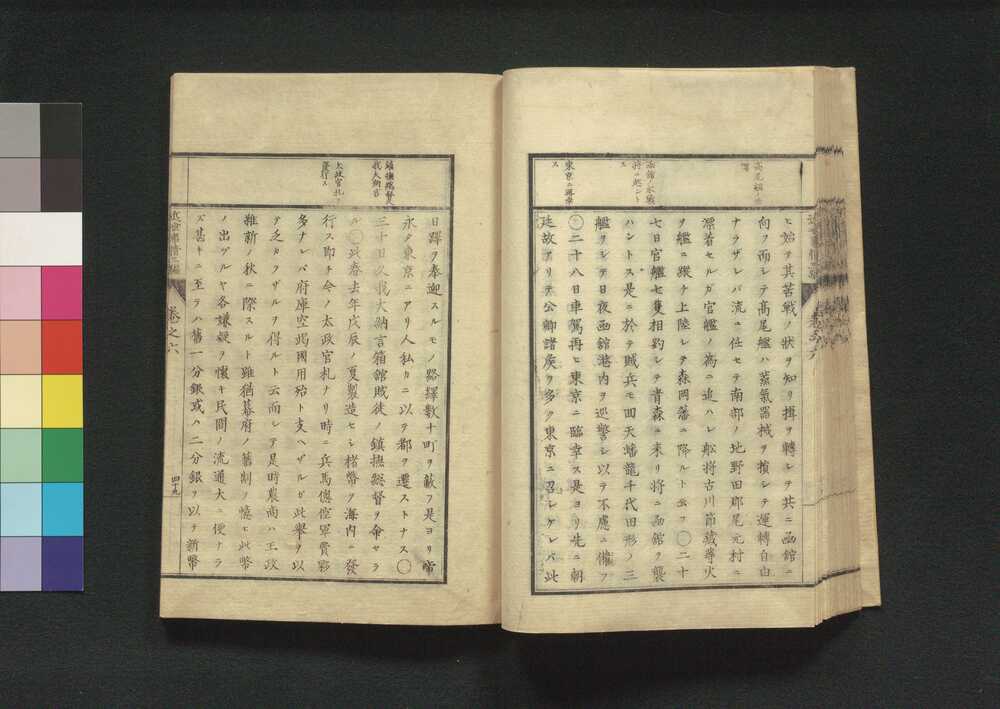 ヒ始テ其苦戰ノ狀ヲ知リ揖ヲ轉シテ共ニ函館ニ
向フ而シテ高尾艦ハ蒸氣器械ヲ損シテ運轉自由
ナラザレバ流ニ任セテ南部ノ地野田郡尾元村ニ
漂着セルガ官艦ノ爲ニ追ハレ舩將古川節藏等火
ヲ艦ニ縱チ上陸シテ森岡藩ニ降ルト云フ〇二十
七日官艦七隻相釣シテ青森ニ來リ將ニ函館ヲ襲
ハントス是ニ於テ賊兵モ回天蟠龍千代田形ノ三
艦ヲシテ日夜函館港内ヲ巡警シ以テ不慮ニ備フ
〇二十八日車駕再ヒ東京ニ臨幸ス是ヨリ先ニ朝
廷故アリテ公卿諸矦ヲ多ク東京ニ召シケレバ此
東京ニ臨幸
ス
日蹕ヲ奉迎スルモノ路繹數十町ヲ蔽フ是ヨリ帝
永ク東京ニアリ人私カニ以テ都ヲ遷ストナス〇
三十日久我大納言箱館賊徒ノ鎭撫總督ヲ命セラ
ル〇此春去年戊辰ノ夏製造セシ楮幣ヲ海内ニ發
行ス即チ今ノ太政官札ナリ時ニ兵馬倥偬軍費夥
多ナレバ府庫空竭國用殆ト支ヘザルガ此舉ヲ以
テ乏カラザルヲ得ルト云而シテ是時農商ハ王政
維新ノ秋ニ際スルト雖猶幕府ノ舊制ノ憶ヒ此幣
ノ出ヅルヤ各嫌疑ヲ懷キ民間ノ流通大ニ便ナラ
ズ甚キニ至テハ舊一分銀或ハ二分銀ヲ以テ新幣
鎭撫總督
我大納言
太政官札ヲ
發行ス
卷之六
四十九